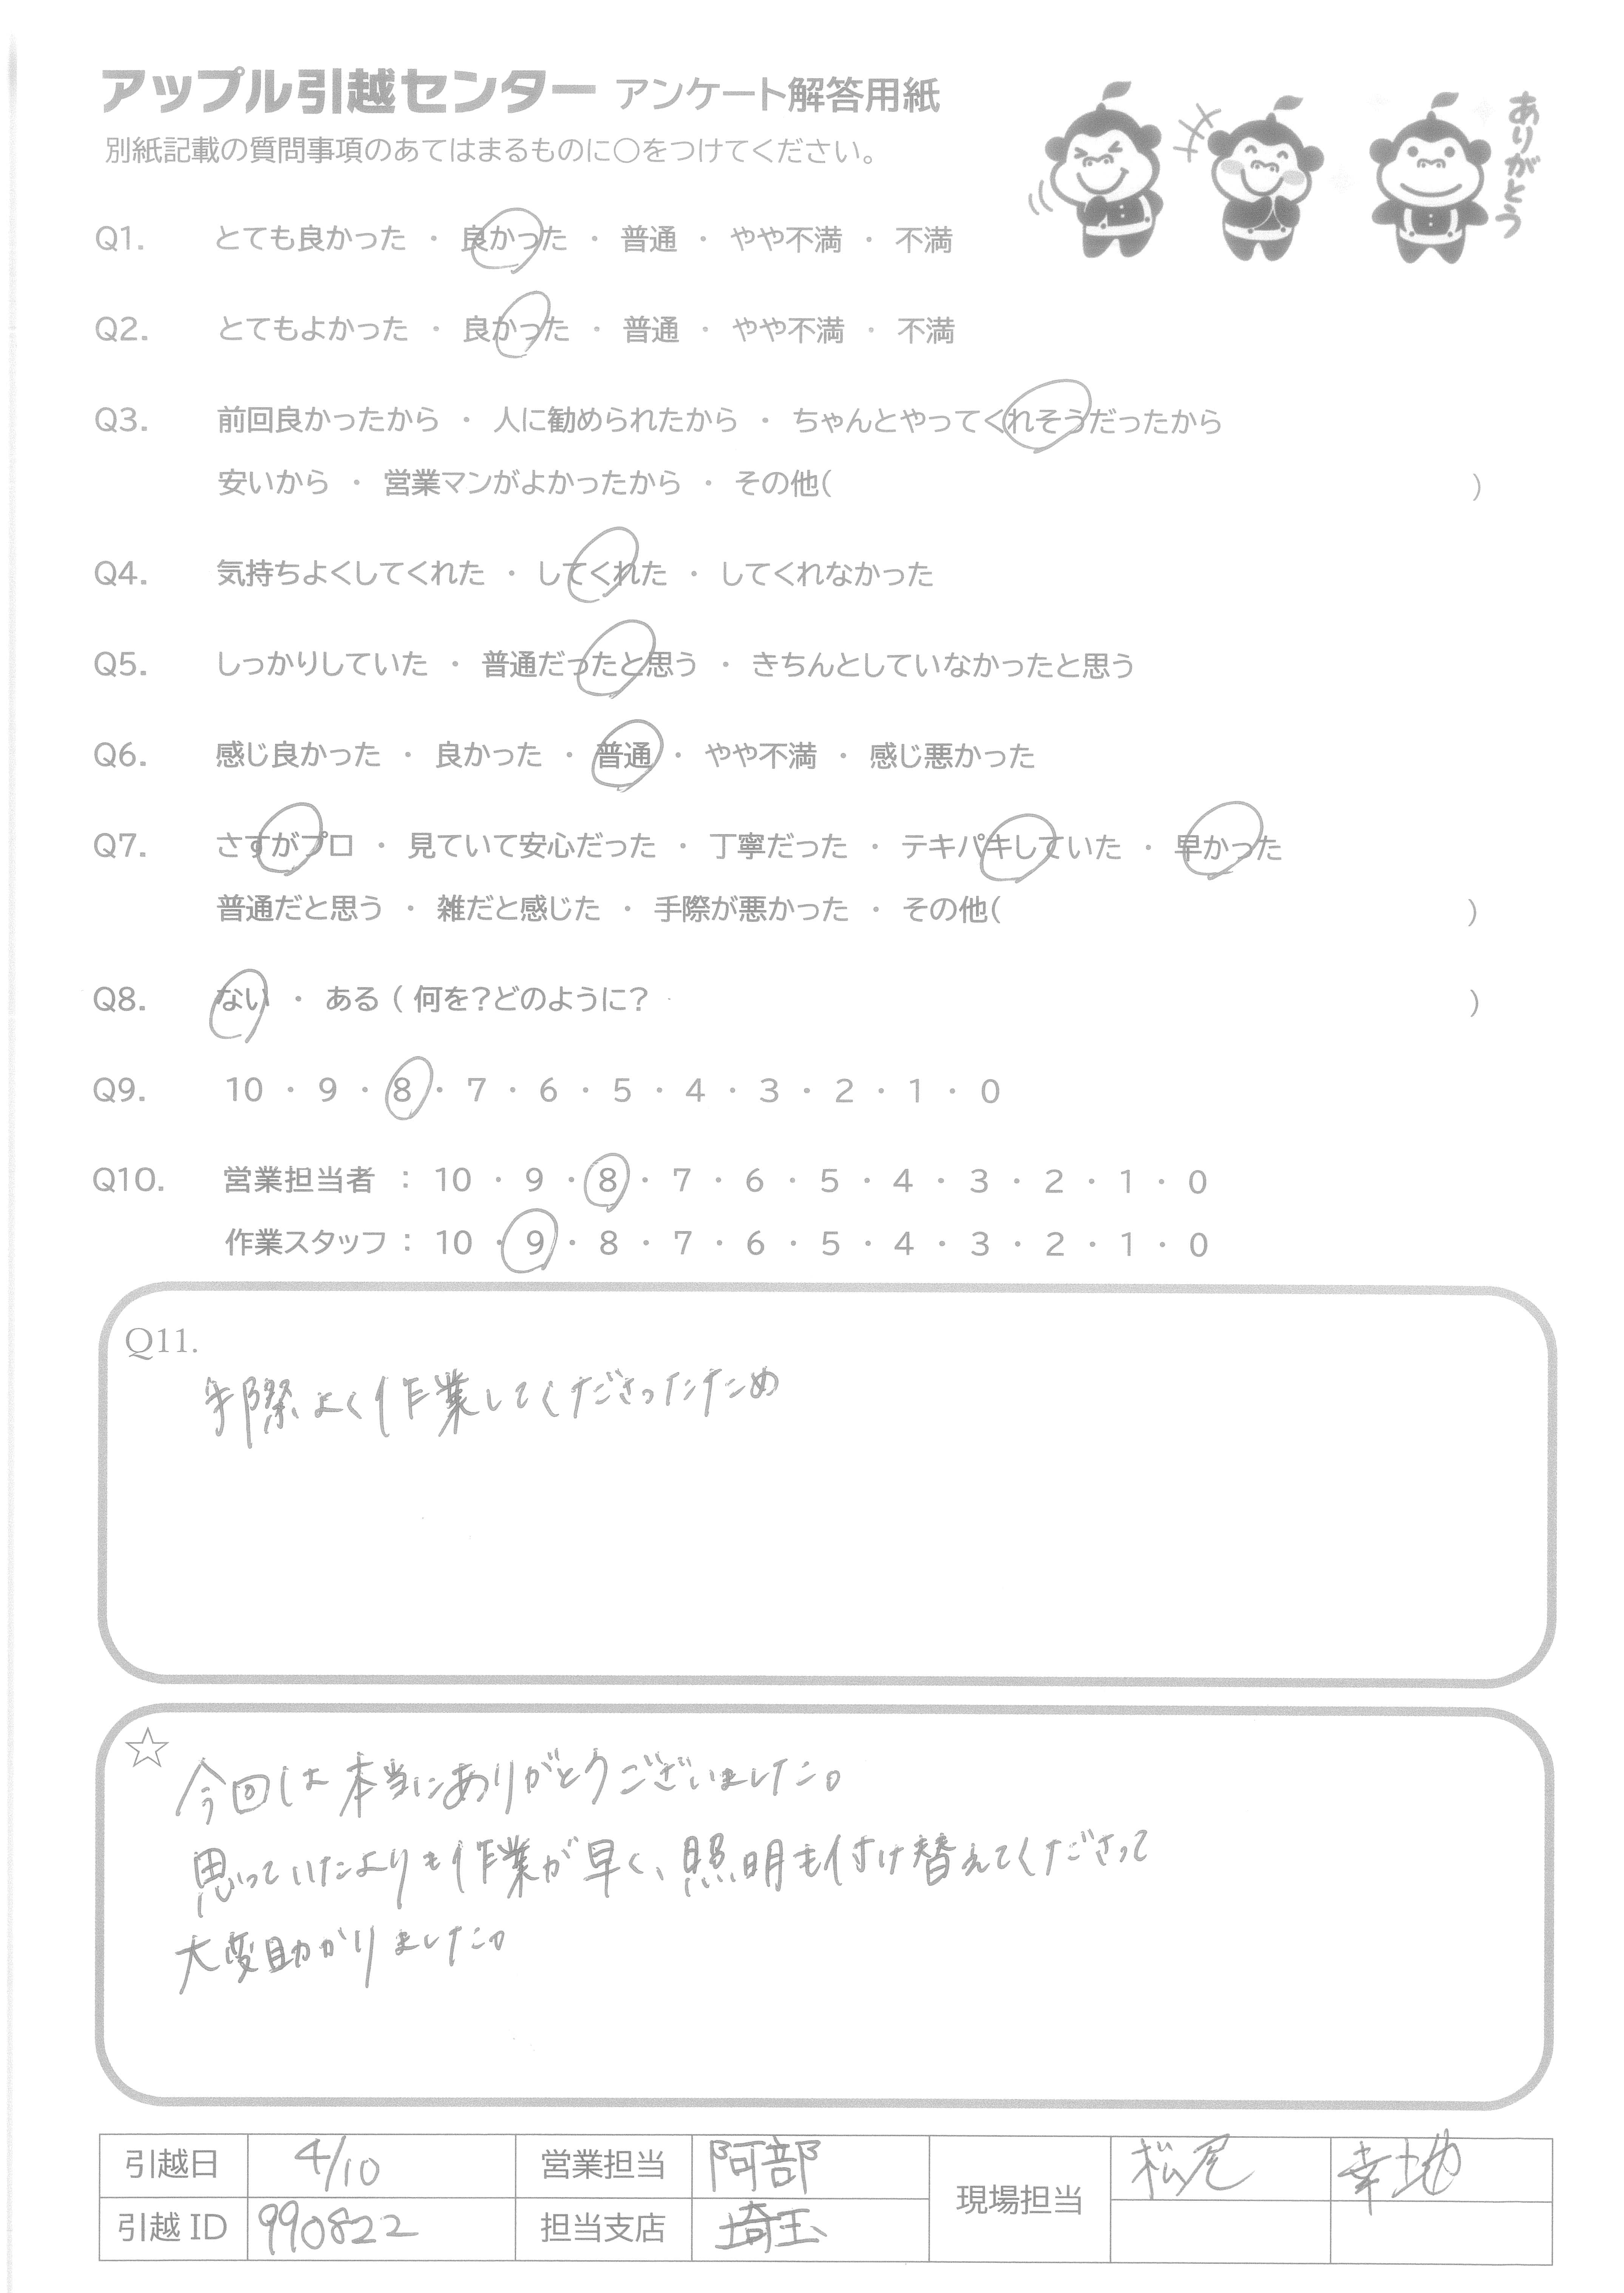 アップル引越センター アンケート解答用紙
別紙記載の質問事項のあてはまるものに〇をつけてください。
ありがとう
Q1. とても良かった ・ 良かった ・ 普通 ・ やや不満 ・ 不満
Q2. とてもよかった ・ 良かった ・ 普通 ・ やや不満 ・ 不満
Q3. 前回良かったから ・ 人に勧められたから ・ ちゃんとやってくれそうだったから
安いから ・ 営業マンがよかったから ・ その他( )
Q4. 気持ちよくしてくれた ・ してくれた ・ してくれなかった
Q5. しっかりしていた ・ 普通だったと思う ・ きちんとしていなかったと思う
Q6. 感じ良かった ・ 良かった ・ 普通 ・ やや不満 ・ 感じ悪かった
Q7. さすがプロ ・ 見ていて安心だった ・ 丁寧だった ・ テキパキしていた ・ 早かった
普通だと思う ・ 雑だと感じた ・ 手際が悪かった ・ その他( )
Q8. ない ・ ある ( 何を?どのように? )
Q9. 10 ・ 9 ・ 8 ・ 7 ・ 6 ・ 5 ・ 4 ・ 3 ・ 2 ・ 1 ・ 0
Q10. 営業担当者 : 10 ・ 9 ・ 8 ・ 7 ・ 6 ・ 5 ・ 4 ・ 3 ・ 2 ・ 1 ・ 0
作業スタッフ : 10 ・ 9 ・ 8 ・ 7 ・ 6 ・ 5 ・ 4 ・ 3 ・ 2 ・ 1 ・ 0
Q11.
手際よく作業してくださったため
☆
今回は本当にありがとうございました。
思っていたよりも作業が早く、照明も付け替えてくださって
大変助かりました。
引越日 4/10 営業担当 阿部 現場担当 松尾 幸地
引越 ID 990822 担当支店 埼玉